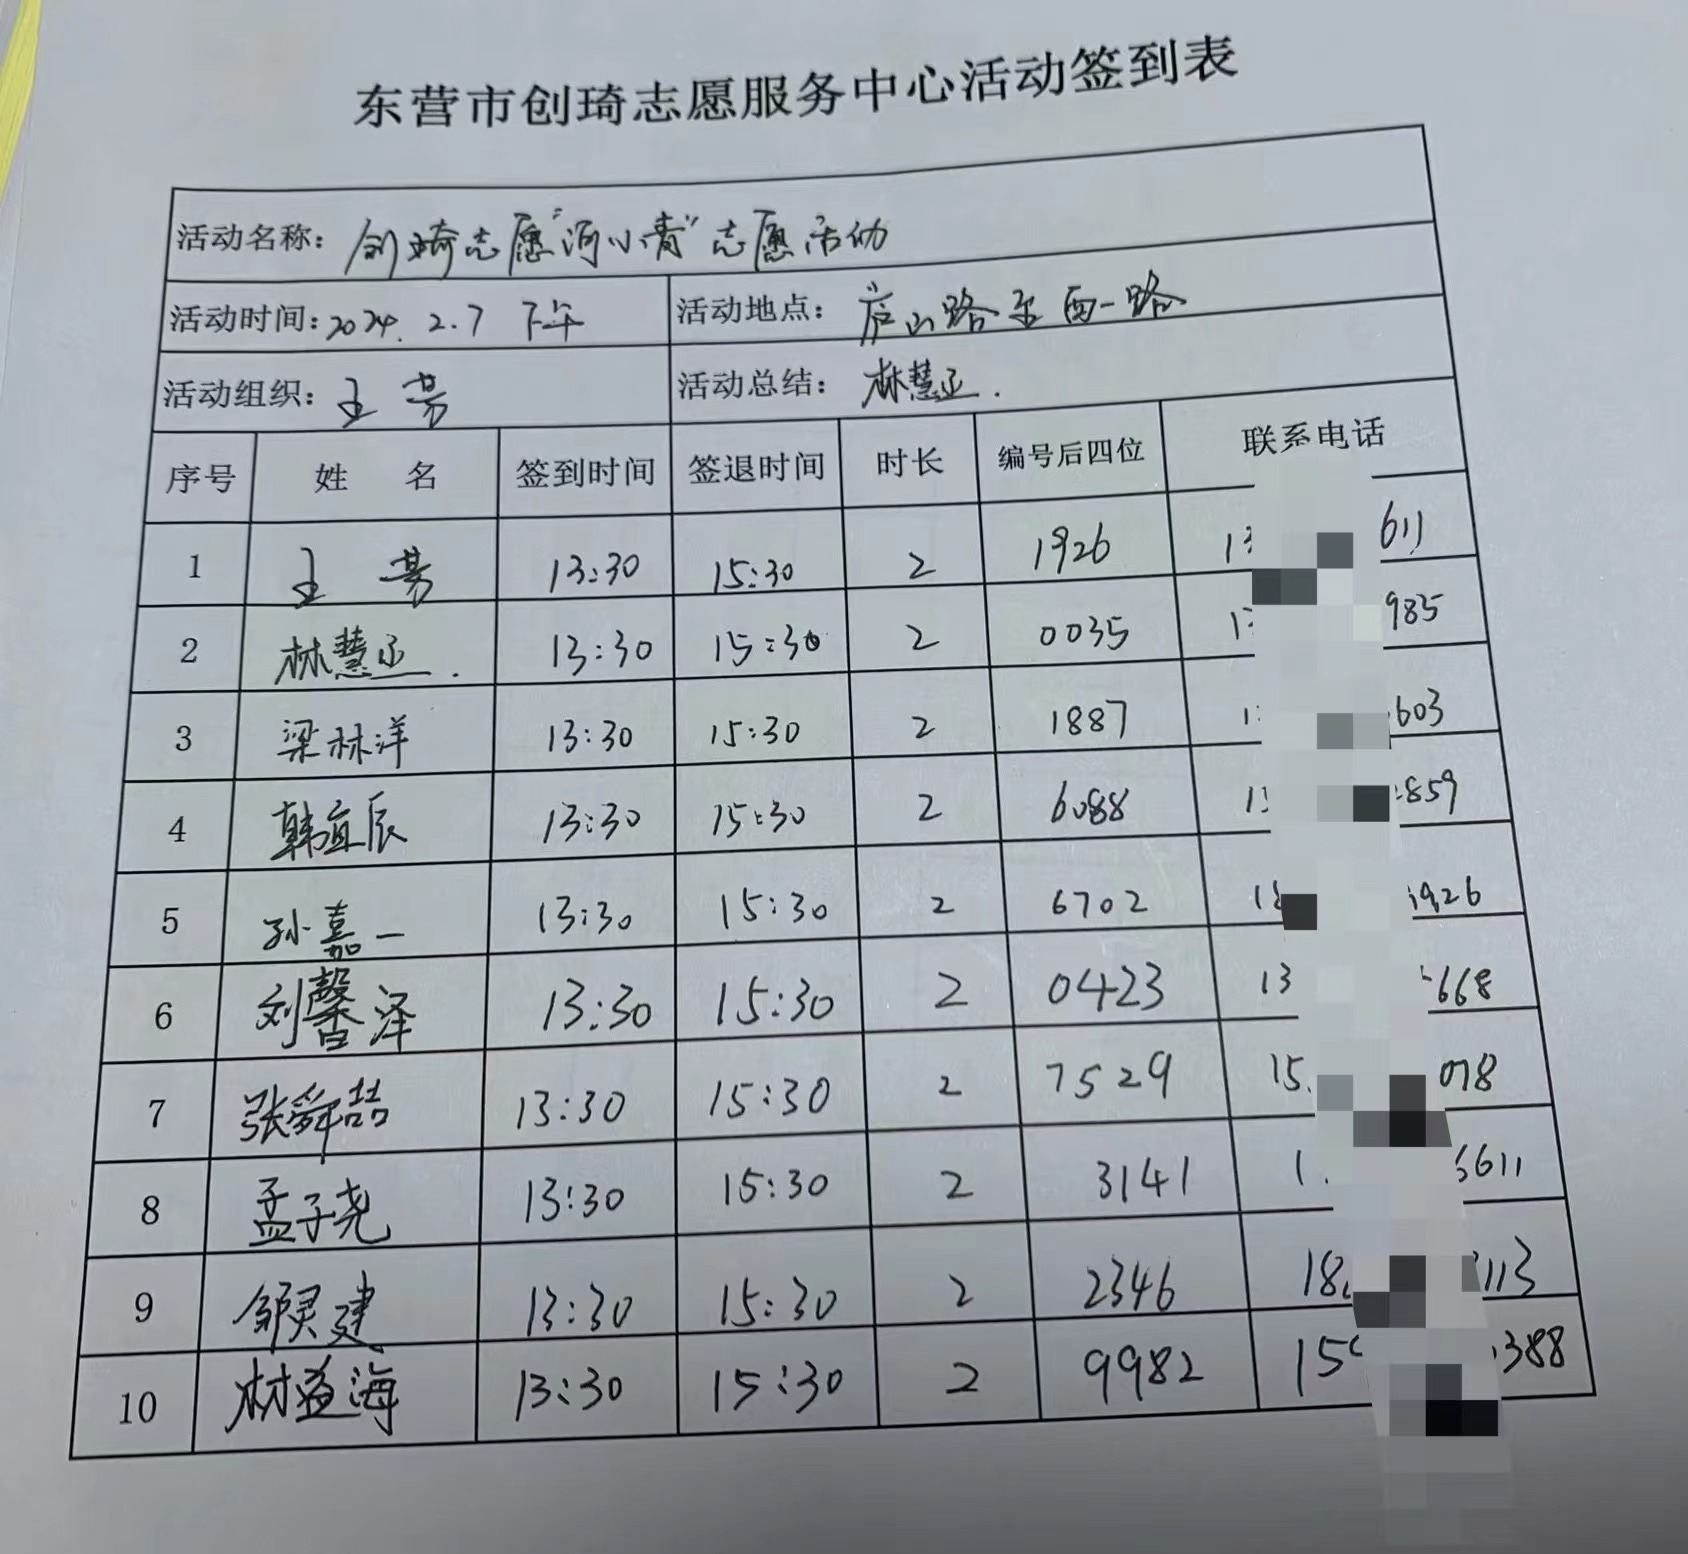 东营市创琦志愿服务中心活动签到表
活动名称：创琦志愿"河小青"志愿活动
活动时间：2024.2.7 下午 活动地点：庐山路至西一路
活动组织：王芳 活动总结：林慧丞.
序号 姓 名 签到时间 签退时间 时长 编号后四位 联系电话
1 王芳 13:30 15:30 2 1926 13 611
2 林慧丞. 13:30 15:30 2 0035 13 985
3 梁林洋 13:30 15:30 2 1887 1 603
4 韩宜辰 13:30 15:30 2 6088 13 859
5 孙嘉一 13:30 15:30 2 6702 18 926
6 刘馨泽 13:30 15:30 2 0423 13 668
7 张舜喆 13:30 15:30 2 7529 15 078
8 孟子尧 13:30 15:30 2 3141 1 6611
9 建 13:30 15:30 2 2346 18 113
10 林益海 13:30 15:30 2 9982 15 388